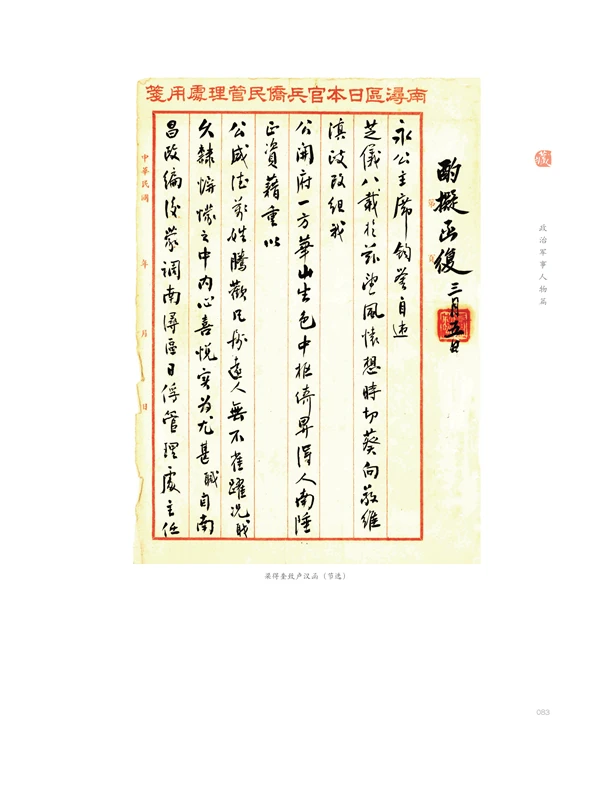 南潯區日本官兵僑民管理處用箋
酌擬函復 三月五日
永公主席鈞鑒自違
芝儀八載於茲望風懷想時切葵向敬維
滇政改組我
公開府一方華山生色中樞倚畀得人南陲
正資藉重以
公威德萬姓騰歡凡屬遠人無不雀躍況職
久隸帡幪之中內心喜悅實為尤甚職自南
昌改編後蒙調南潯區日俘管理處主任
中華民國 年 月 日
第 頁
政治军事人物篇
梁得奎致卢汉函（节选）
083